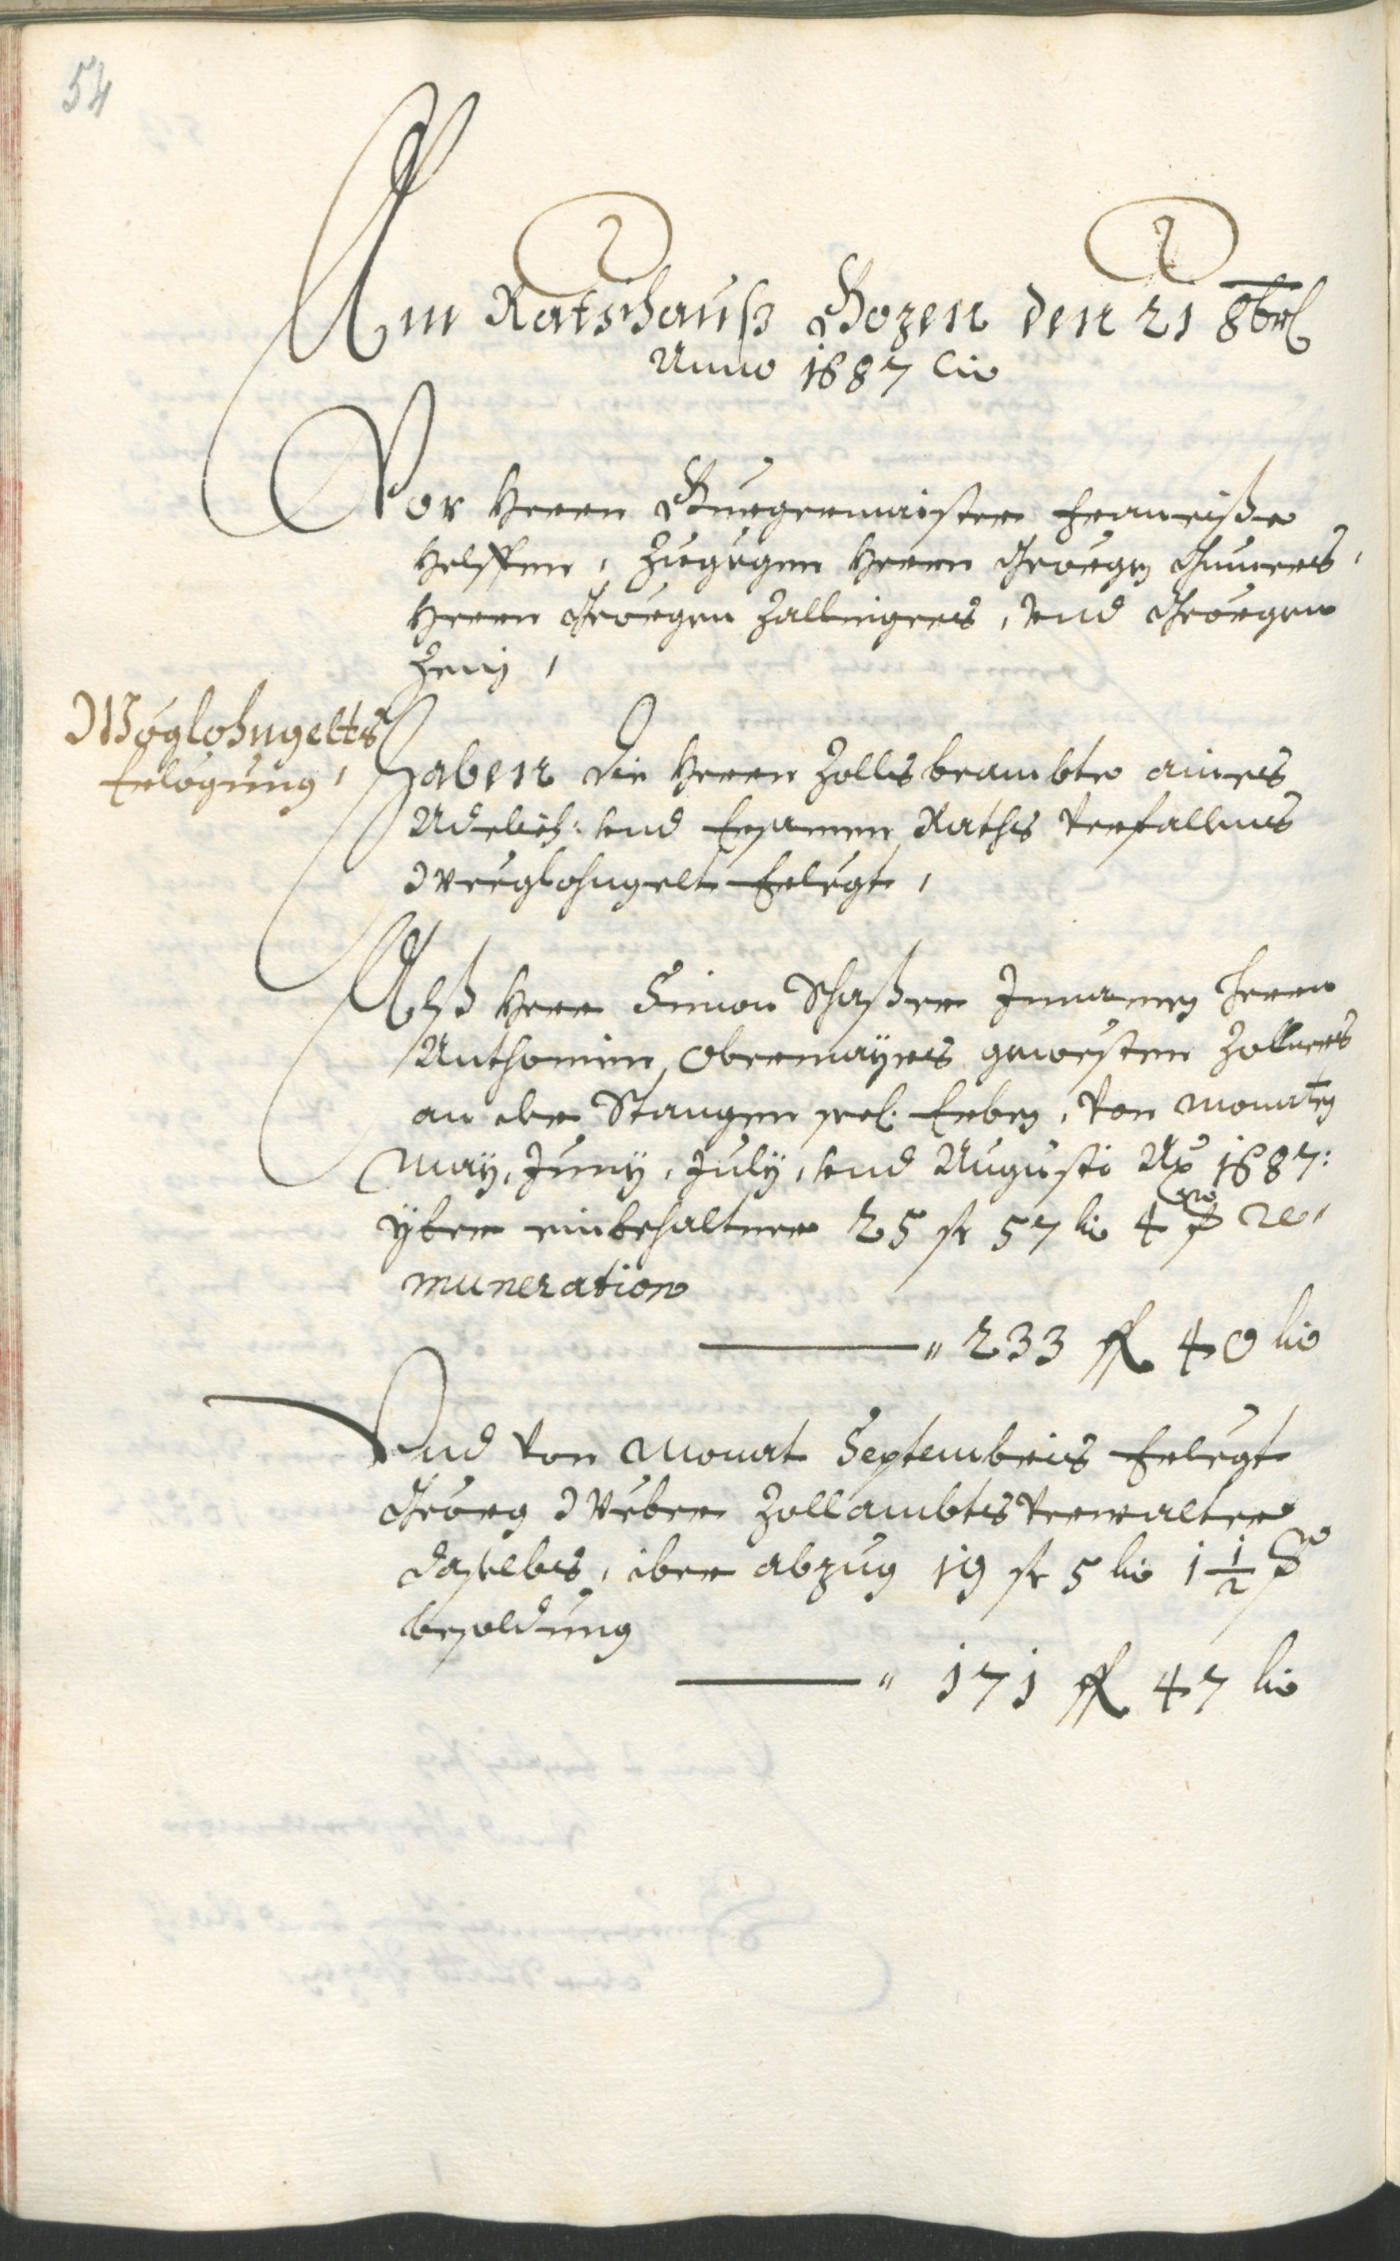 54
Am Ratshauß Bozen den 21 8brl
Anno 1687 etc
Vor Herrn Burgermaister Franciscn
Helffen, Zugegen Herrn Georgn
Herrn Georgen Zallingers, vnd Georgen
Zenj,
Wöglohngelts
Erlögung,
Haben die Herrn Zollsbeambte aines
Adelich: vnd Ersamen Raths verfallnes
Weeglohngelt Erlegt,
Alß Herr Simon Innamen Herrn
Anthonien Obermaÿrs gewesten Zollners
an der Stangen sel. Erben, von Monaten
Maÿ, Junÿ, Julÿ, vnd Augusti Ao 1687:
ÿber einbehaltner 25 fl 57 kr 4 re-
muneration
" 233 fl 40 kr
Vnd von Monat Septembris Erlegt
Georg Weber Zollambtsverwalter
daselbs, iber abzug 19 fl 5 kr 1 1/2
besoldung
" 171 fl 47 kr